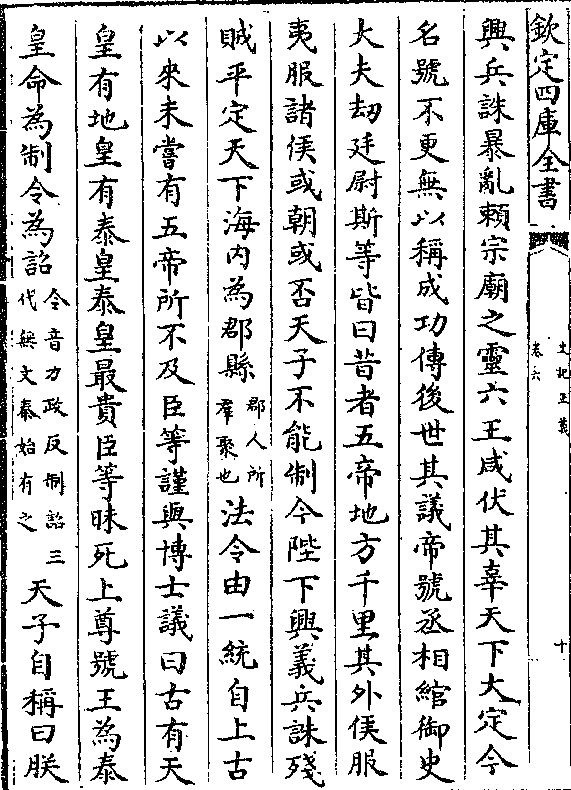 欽定四庫全書
史記正義
卷六
十
興兵誅暴亂賴宗廟之靈六王咸伏其辜天下大定今
名號不更無以稱成功傳後世其議帝號丞相綰御史
大夫劫廷尉斯等皆曰昔者五帝地方千里其外侯服
夷服諸侯或朝或否天子不能制今陛下興義兵誅殘
賊平定天下海内為郡縣郡人所羣聚也法令由一統自上古
以來未嘗有五帝所不及臣等謹與博士議曰古有天
皇有地皇有泰皇泰皇最貴臣等昧死上尊號王為泰
皇命為制令為詔令音力政反制詔三代無文秦始有之天子自稱曰朕